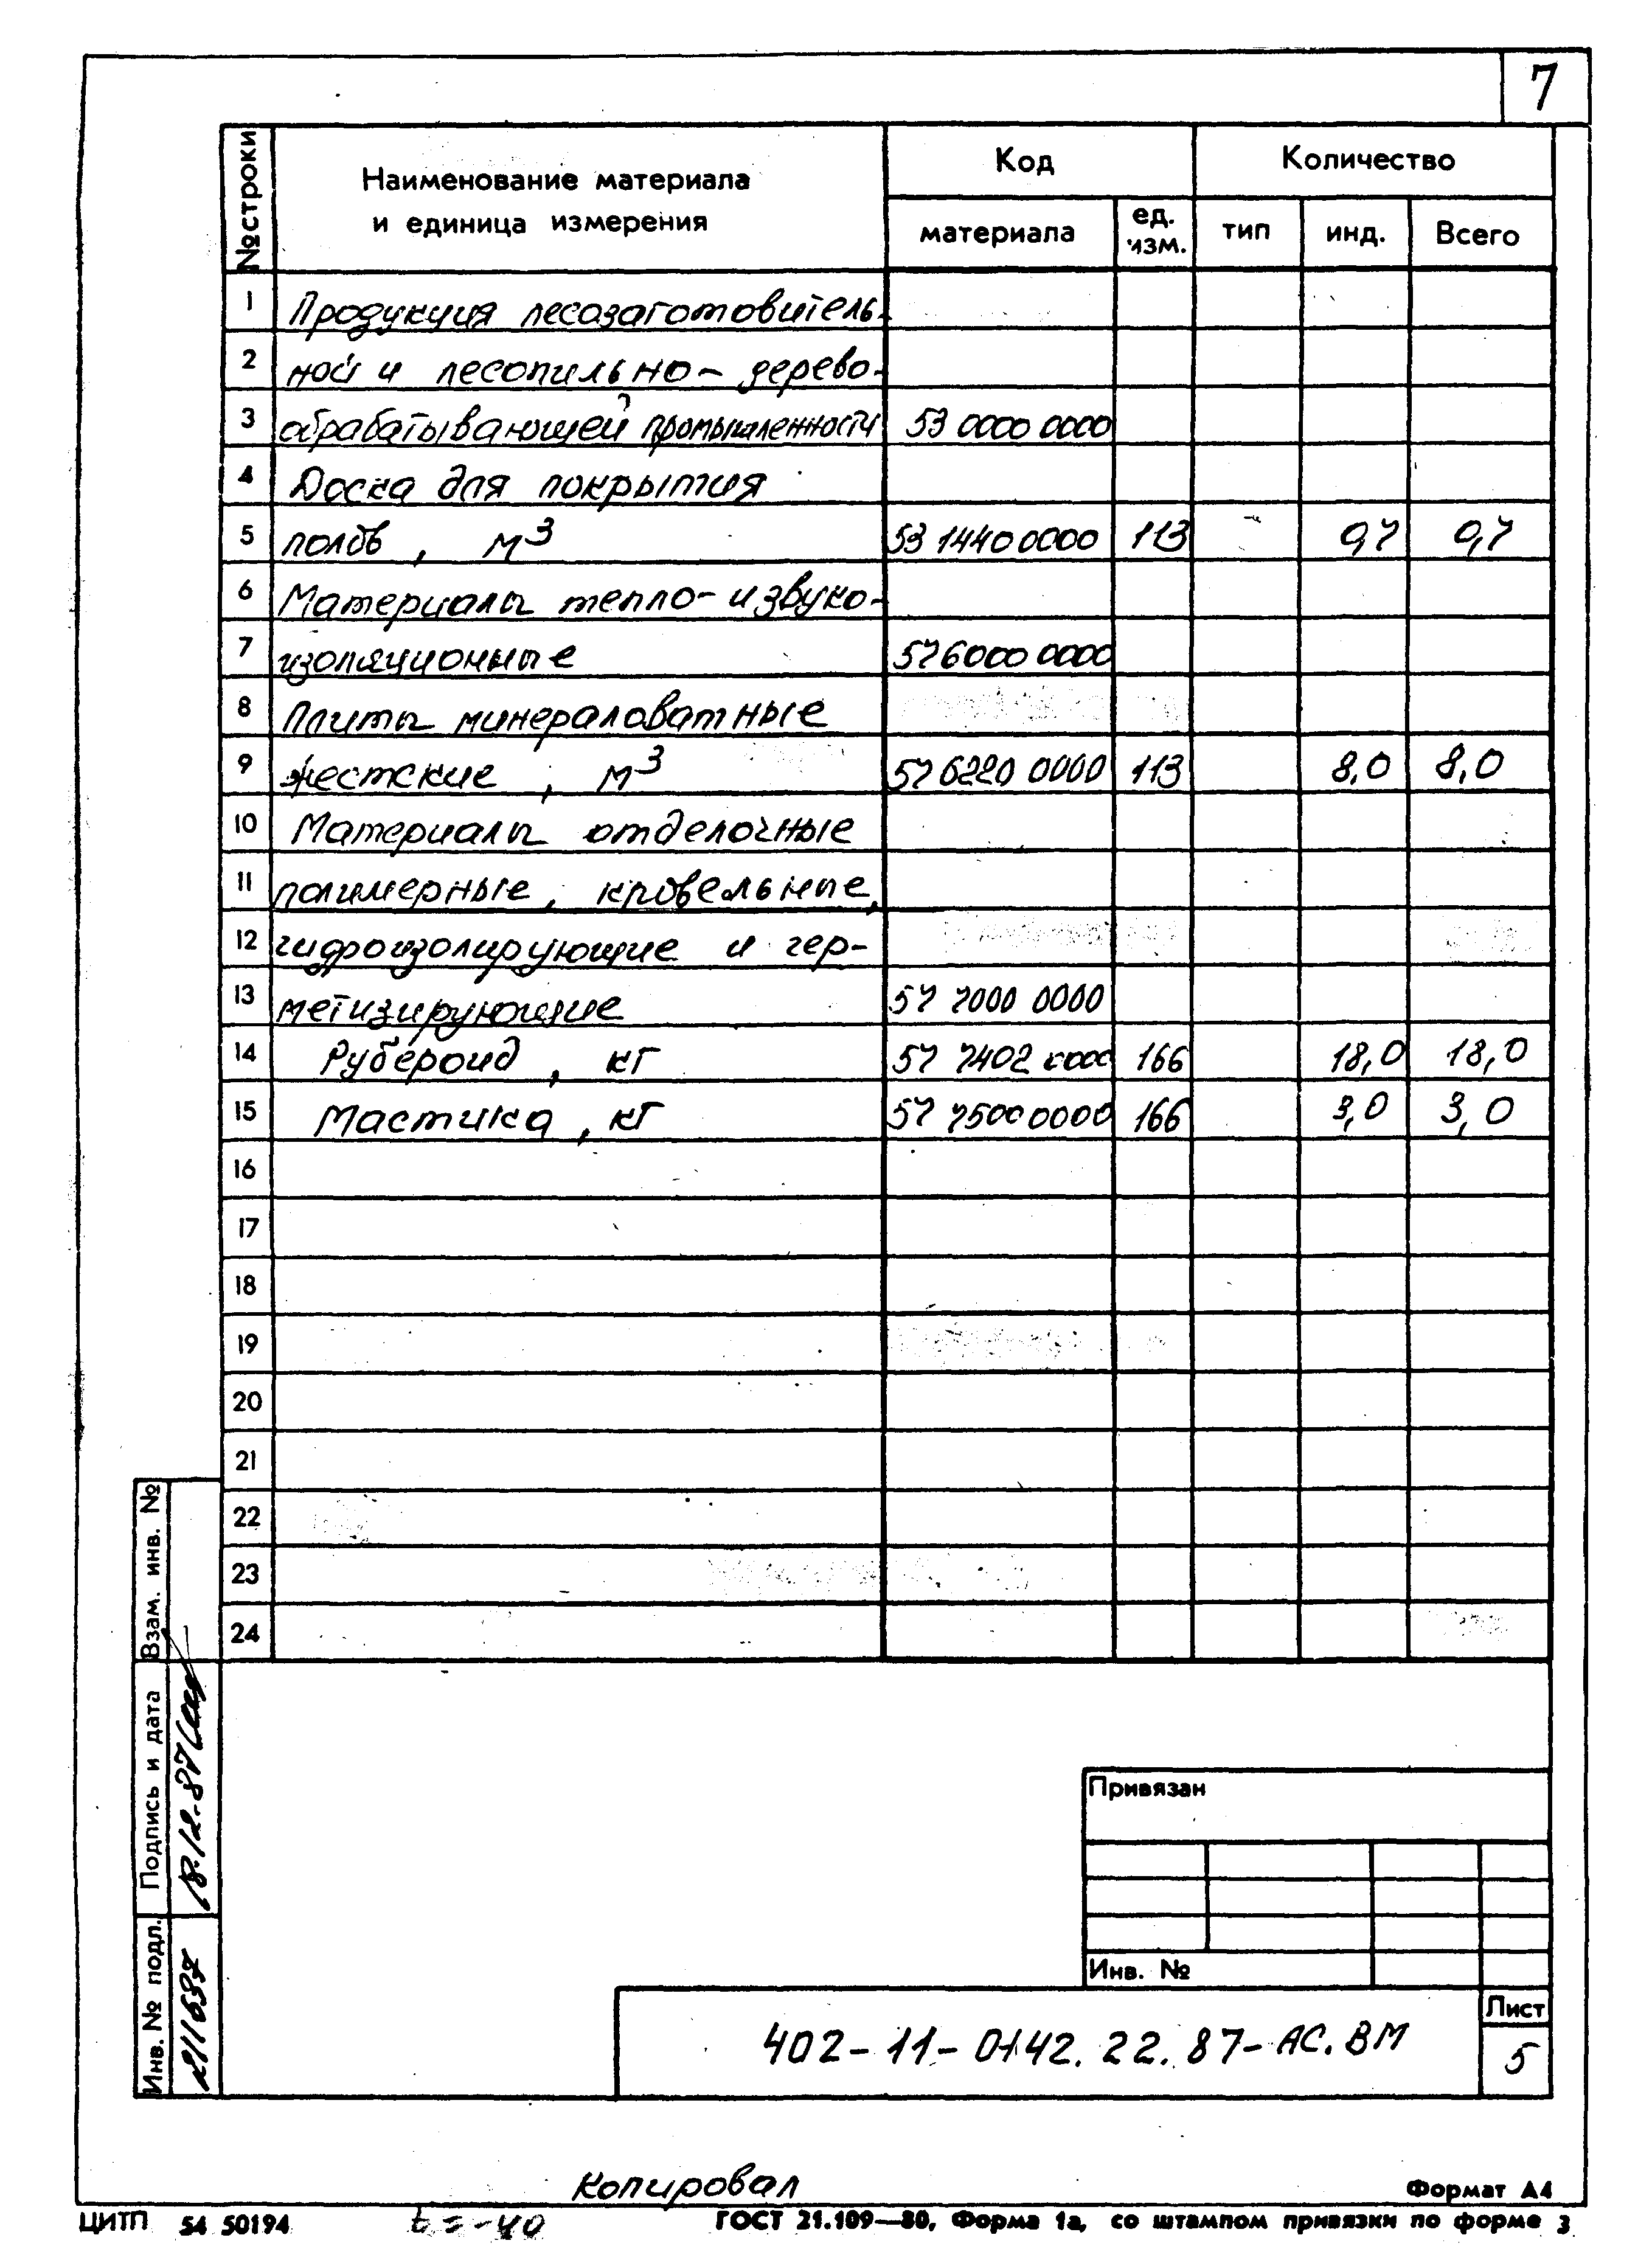 7
№ строки
Наименование материала
и единица измерения
Код
Количество
материала
ед. изм.
тип
инд.
Всего
1 Продукция лесозаготовитель-
2 ной и лесопильно-дерево-
3 обрабатывающей промышленности 53 0000 0000
4 Доска для покрытия
5 полов, м3 53 1440 0000 113 0,7 0,7
6 Материалы тепло- и звуко-
7 изоляционные 57 6000 0000
8 Плиты минераловатные
9 жестские, м3 57 6220 0000 113 8,0 8,0
10 Материалы отделочные
11 полимерные, кровельные,
12 гидроизолирующие и гер-
13 метизирующие 57 7000 0000
14 Рубероид, кг 57 7402 0000 166 18,0 18,0
15 Мастика, кг 57 7500 0000 166 3,0 3,0
16
17
18
19
20
21
22
23
24
Взам. инв. №
Подпись и дата
18.12.87
Инв. № подл.
Привязан
Инв. №
402-11-0142.22.87-АС.ВМ
Лист
5
Копировал
Формат А4
ЦИТП 54 50194 t=-40 ГОСТ 21.109—80, Форма 1а, со штампом привязки по форме 3